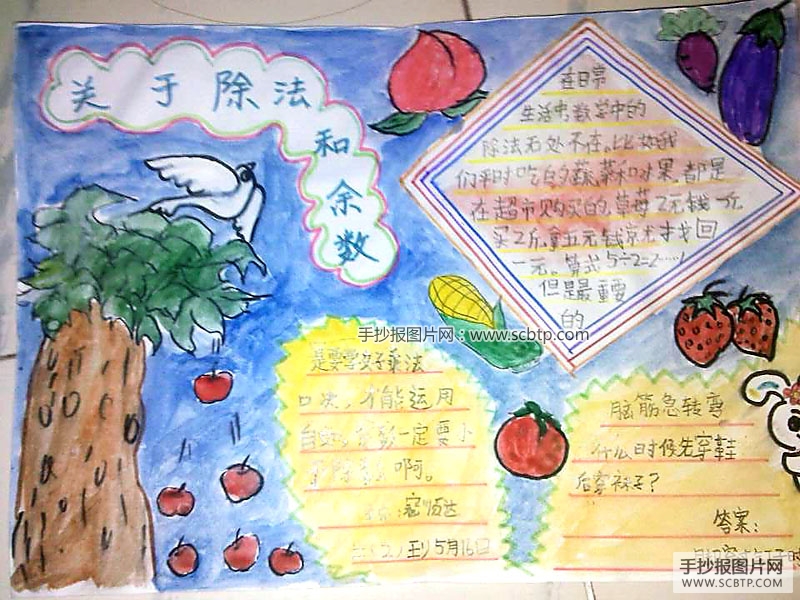 关于除法和余数
在日常
生活中数学中的
除法无处不在,比如我
们平时吃的蔬菜和水果,都是
在超市购买的,草莓2元钱一斤
买2斤,拿五元钱
找回
一元。算式5÷2=2……1
但是最重要
的
手抄报图片网:www.scbtp.com
是要学好乘法
口决,才能运用
一定要
啊。
5月16日
脑筋急转弯
什么时候先穿鞋
后穿袜子?
答案:
手抄报图片网
WWW.SCBTP.COM